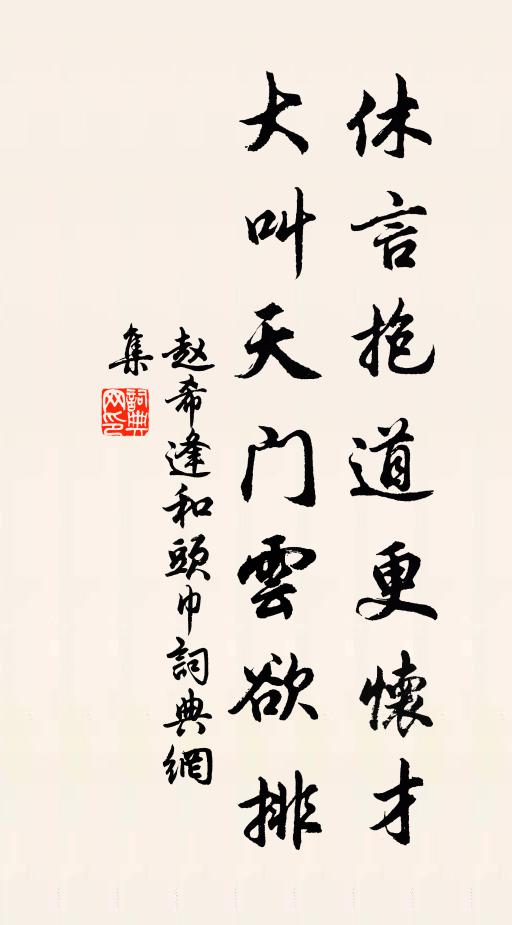 休言抱道更懷才
大叫天门雲欲排
赵希逢和頭巾詞典網
集
詞典
网印